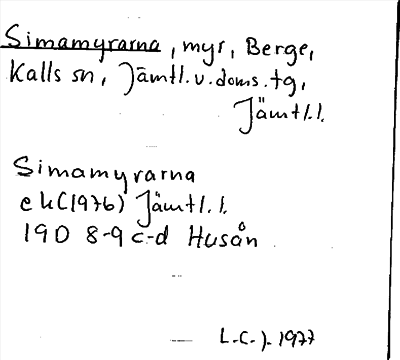 Simamyrarna, myr, Berge,
Kalls sn, Jämtl. v. doms. tg,
Jämtl.l.
Simamyrarna
ek (1976) Jämtl.l.
19D 8-9 c-d Husån
L.C.J. 1977